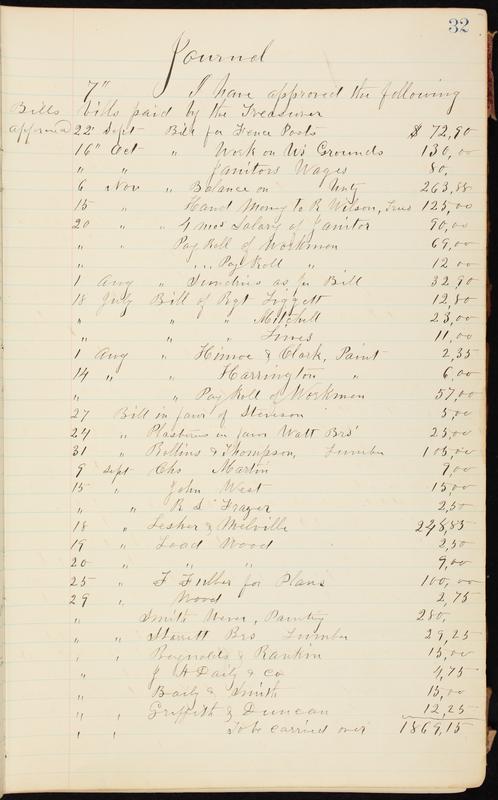 32
Journal
7" I have approved the following
Bills approved
bills paid by the Treasurer
22" Sept Bill for Fence Posts $ 72,90
16" Oct " Work on Grounds 130,00
" " Janitors Wages 80,
6 Nov " Balance on 263,88
15 " Hand Money to R Wilson, Treas 125,00
20 " " 4 mos Salary of Janitor 90,00
" " Pay Roll of Workmen 69,00
" " " Pay Roll " 12 00
1 Aug " Sundries as per Bill 32 90
18 July Bill of Rgt Liggett 12,80
" " " Mitchell 23,00
" " " 11,00
1 Aug " Himoe & Clark, Paint 2,35
14 " " Harrington " 6,00
" " Pay Roll of Workmen 57,00
27 Bill in favr of Stevison 5,00
24 " Plasterers in favr Watt Bros 25,00
31 " Rollins & Thompson, Lumber 105,00
9 Sept Chs Martin 9,00
15 " John West 15,00
" " R S Frazer 2,50
18 " Lesher & Melville 228,85
19 " Load Wood 2,50
20 " " " 9,00
25 " F Fuller for Plans 100,00
29 " Wood 2,75
" Smith Wever, Painting 280,
" " Starrett Bros Lumber 29,25
" " Reynolds & Rankin 15,00
" J A Daily & Co 4,75
" Baily & Smith 15,00
" " Griffith & Duncan 12,25
" " To be carried over 1869,15